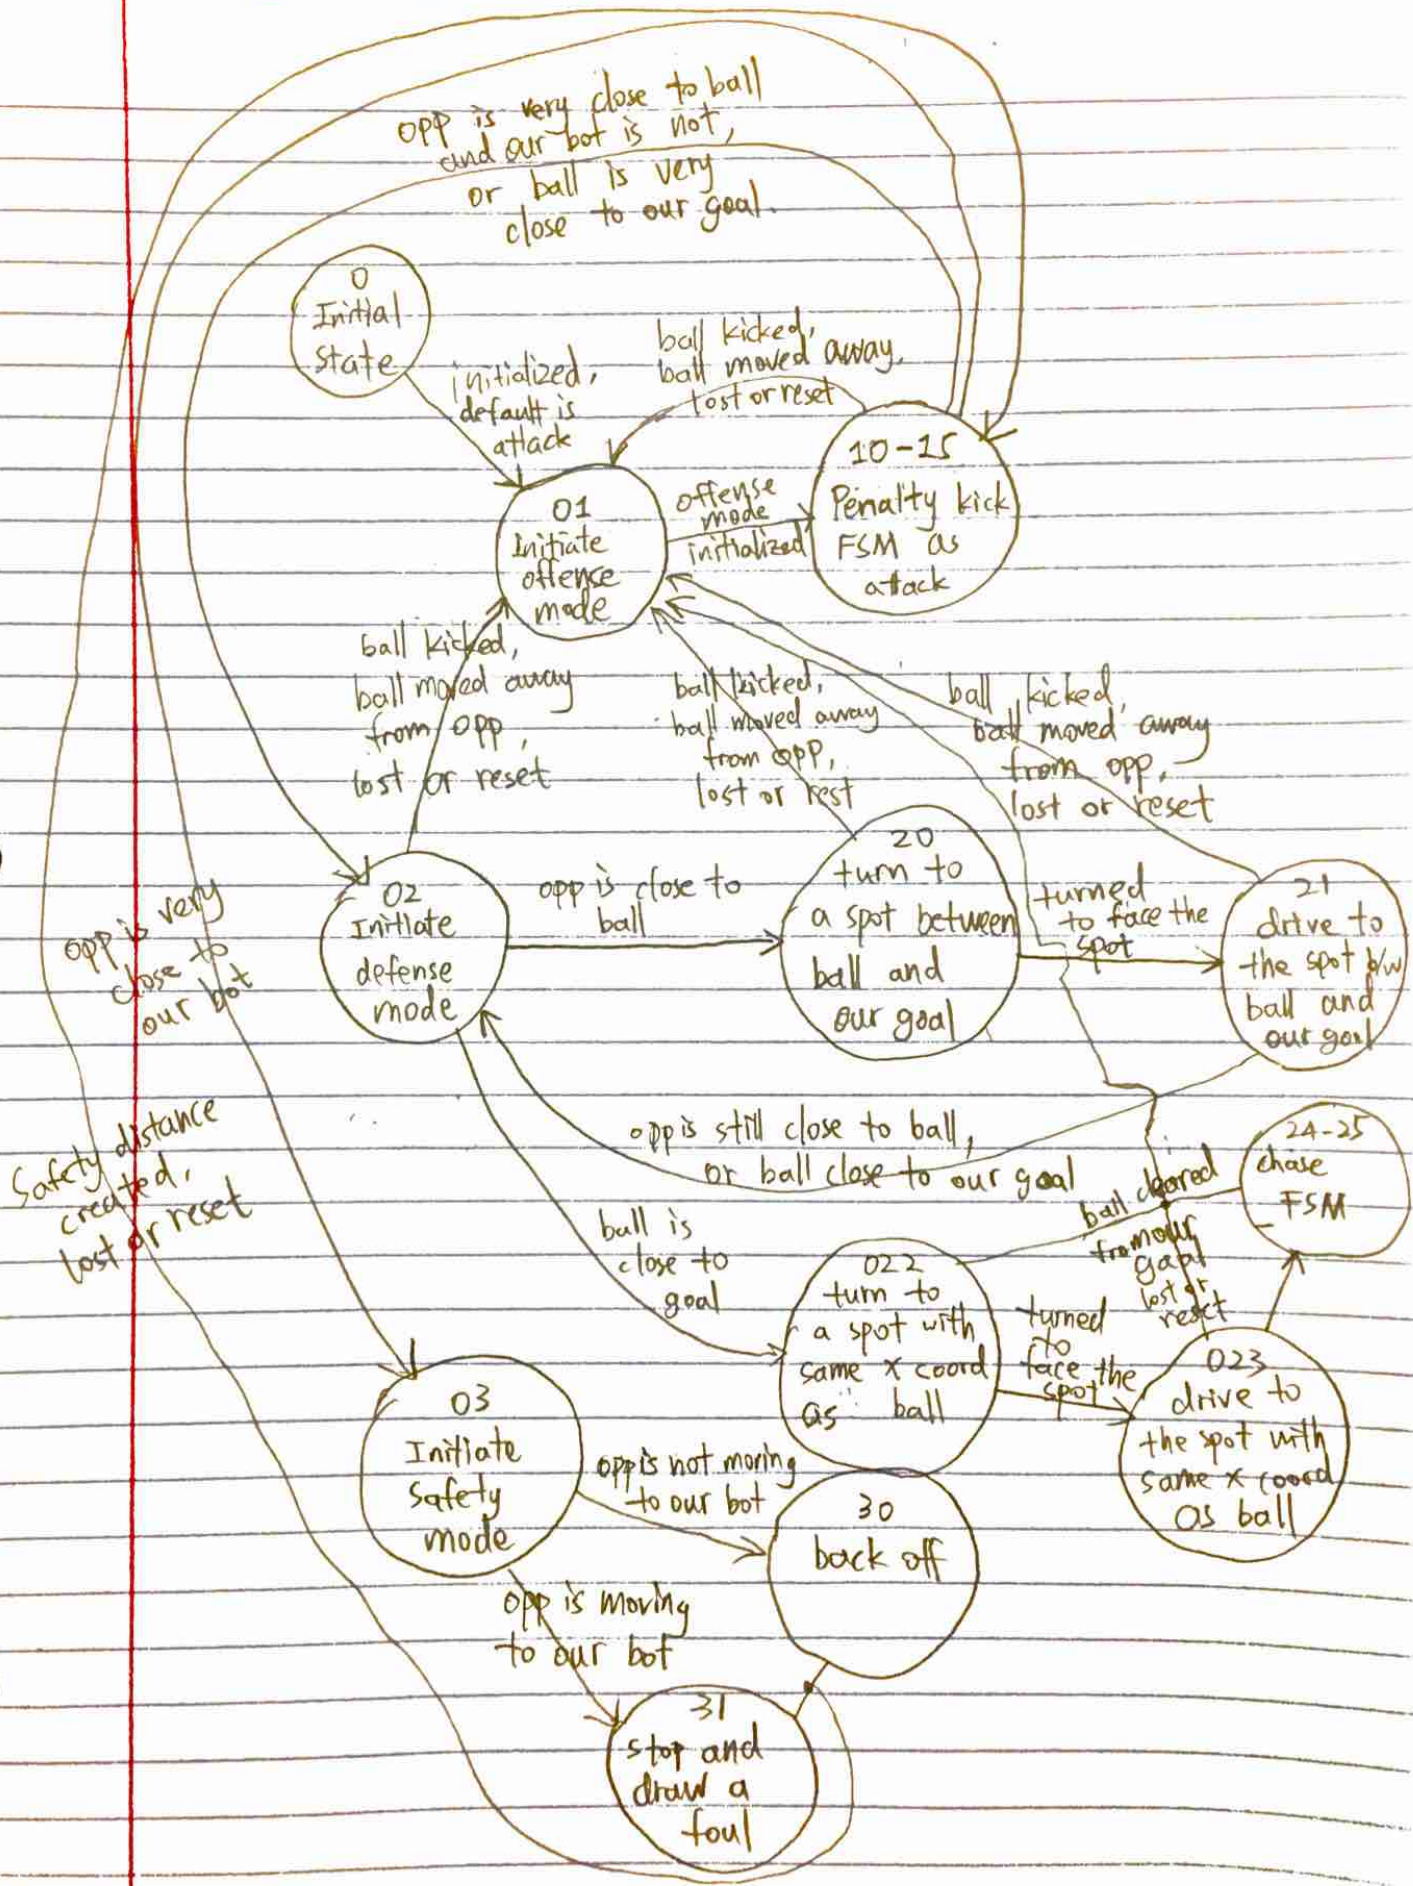 opp is very close to ball
and our bot is not,
or ball is very
close to our goal.
0
Initial
state
initialized,
default is
attack
ball kicked,
ball moved away,
lost or reset
10-15
Penalty kick
FSM as
attack
01
Initiate
offense
mode
offense
mode
initialized
ball kicked,
ball moved away
from opp,
lost or reset
ball kicked,
ball moved away
from opp,
lost or rest
ball kicked,
ball moved away
from opp,
lost or reset
02
Initiate
defense
mode
opp is close to
ball
20
turn to
a spot between
ball and
our goal
turned
to face the
spot
21
drive to
the spot b/w
ball and
our goal
opp is very
close to
our bot
opp is still close to ball,
or ball close to our goal
24-25
chase
FSM
Safety distance
created,
lost or reset
ball is
close to
goal
ball cleared
from our
goal
lost or
reset
022
turn to
a spot with
same x coord
as ball
turned
to
face the
spot
023
drive to
the spot with
same x coord
as ball
03
Initiate
Safety
mode
opp is not moving
to our bot
30
back off
opp is moving
to our bot
31
stop and
draw a
foul